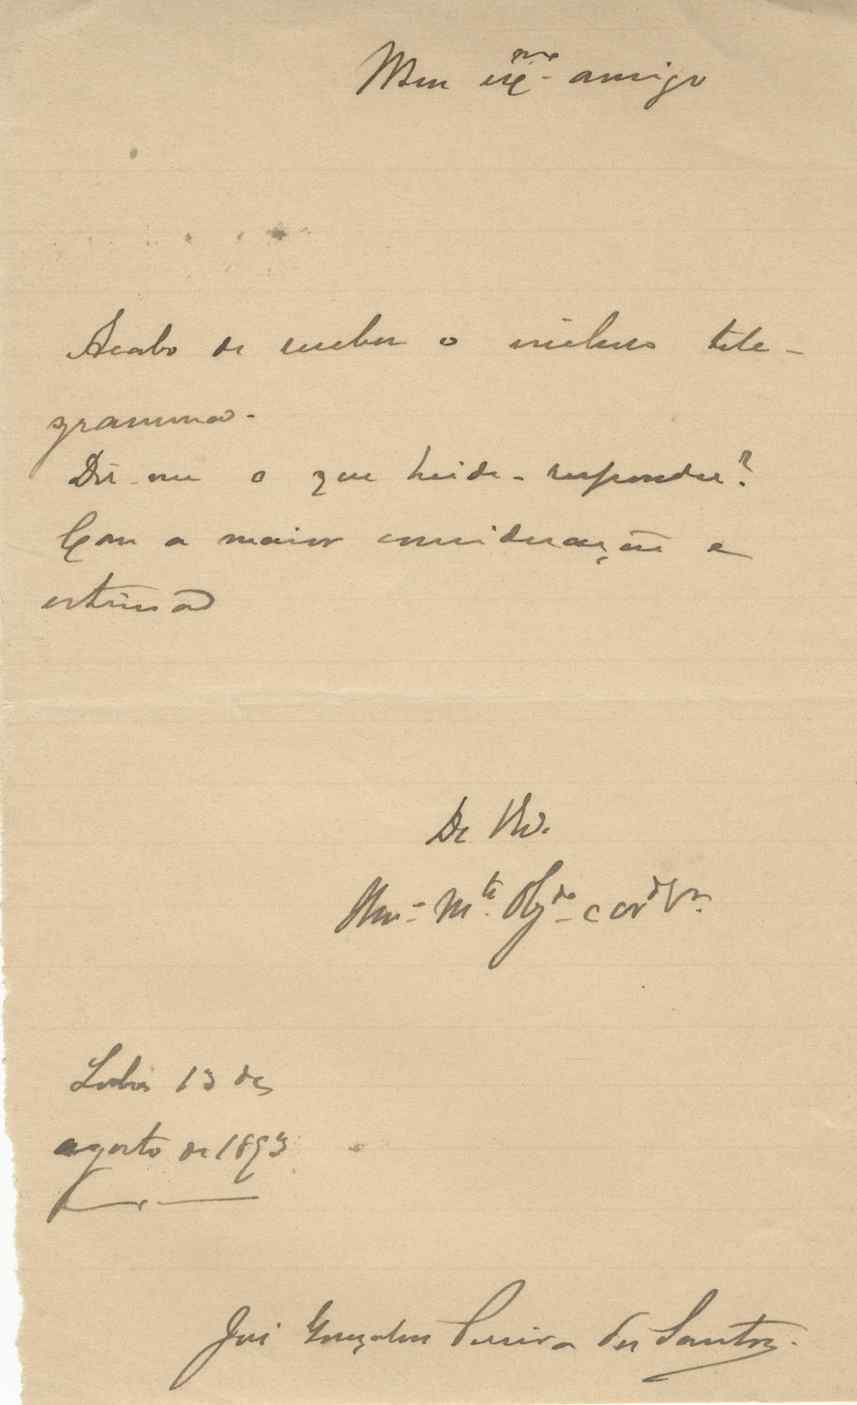 Meu exmo amigo
Acabo de receber o incluso tele-
gramma.
Diz-me o que heide responder?
Com a maior consideração e
estima
De V.
Mto Obgdo e
13 de
agosto de 1893
José Gonçalves Pereira dos Santos.